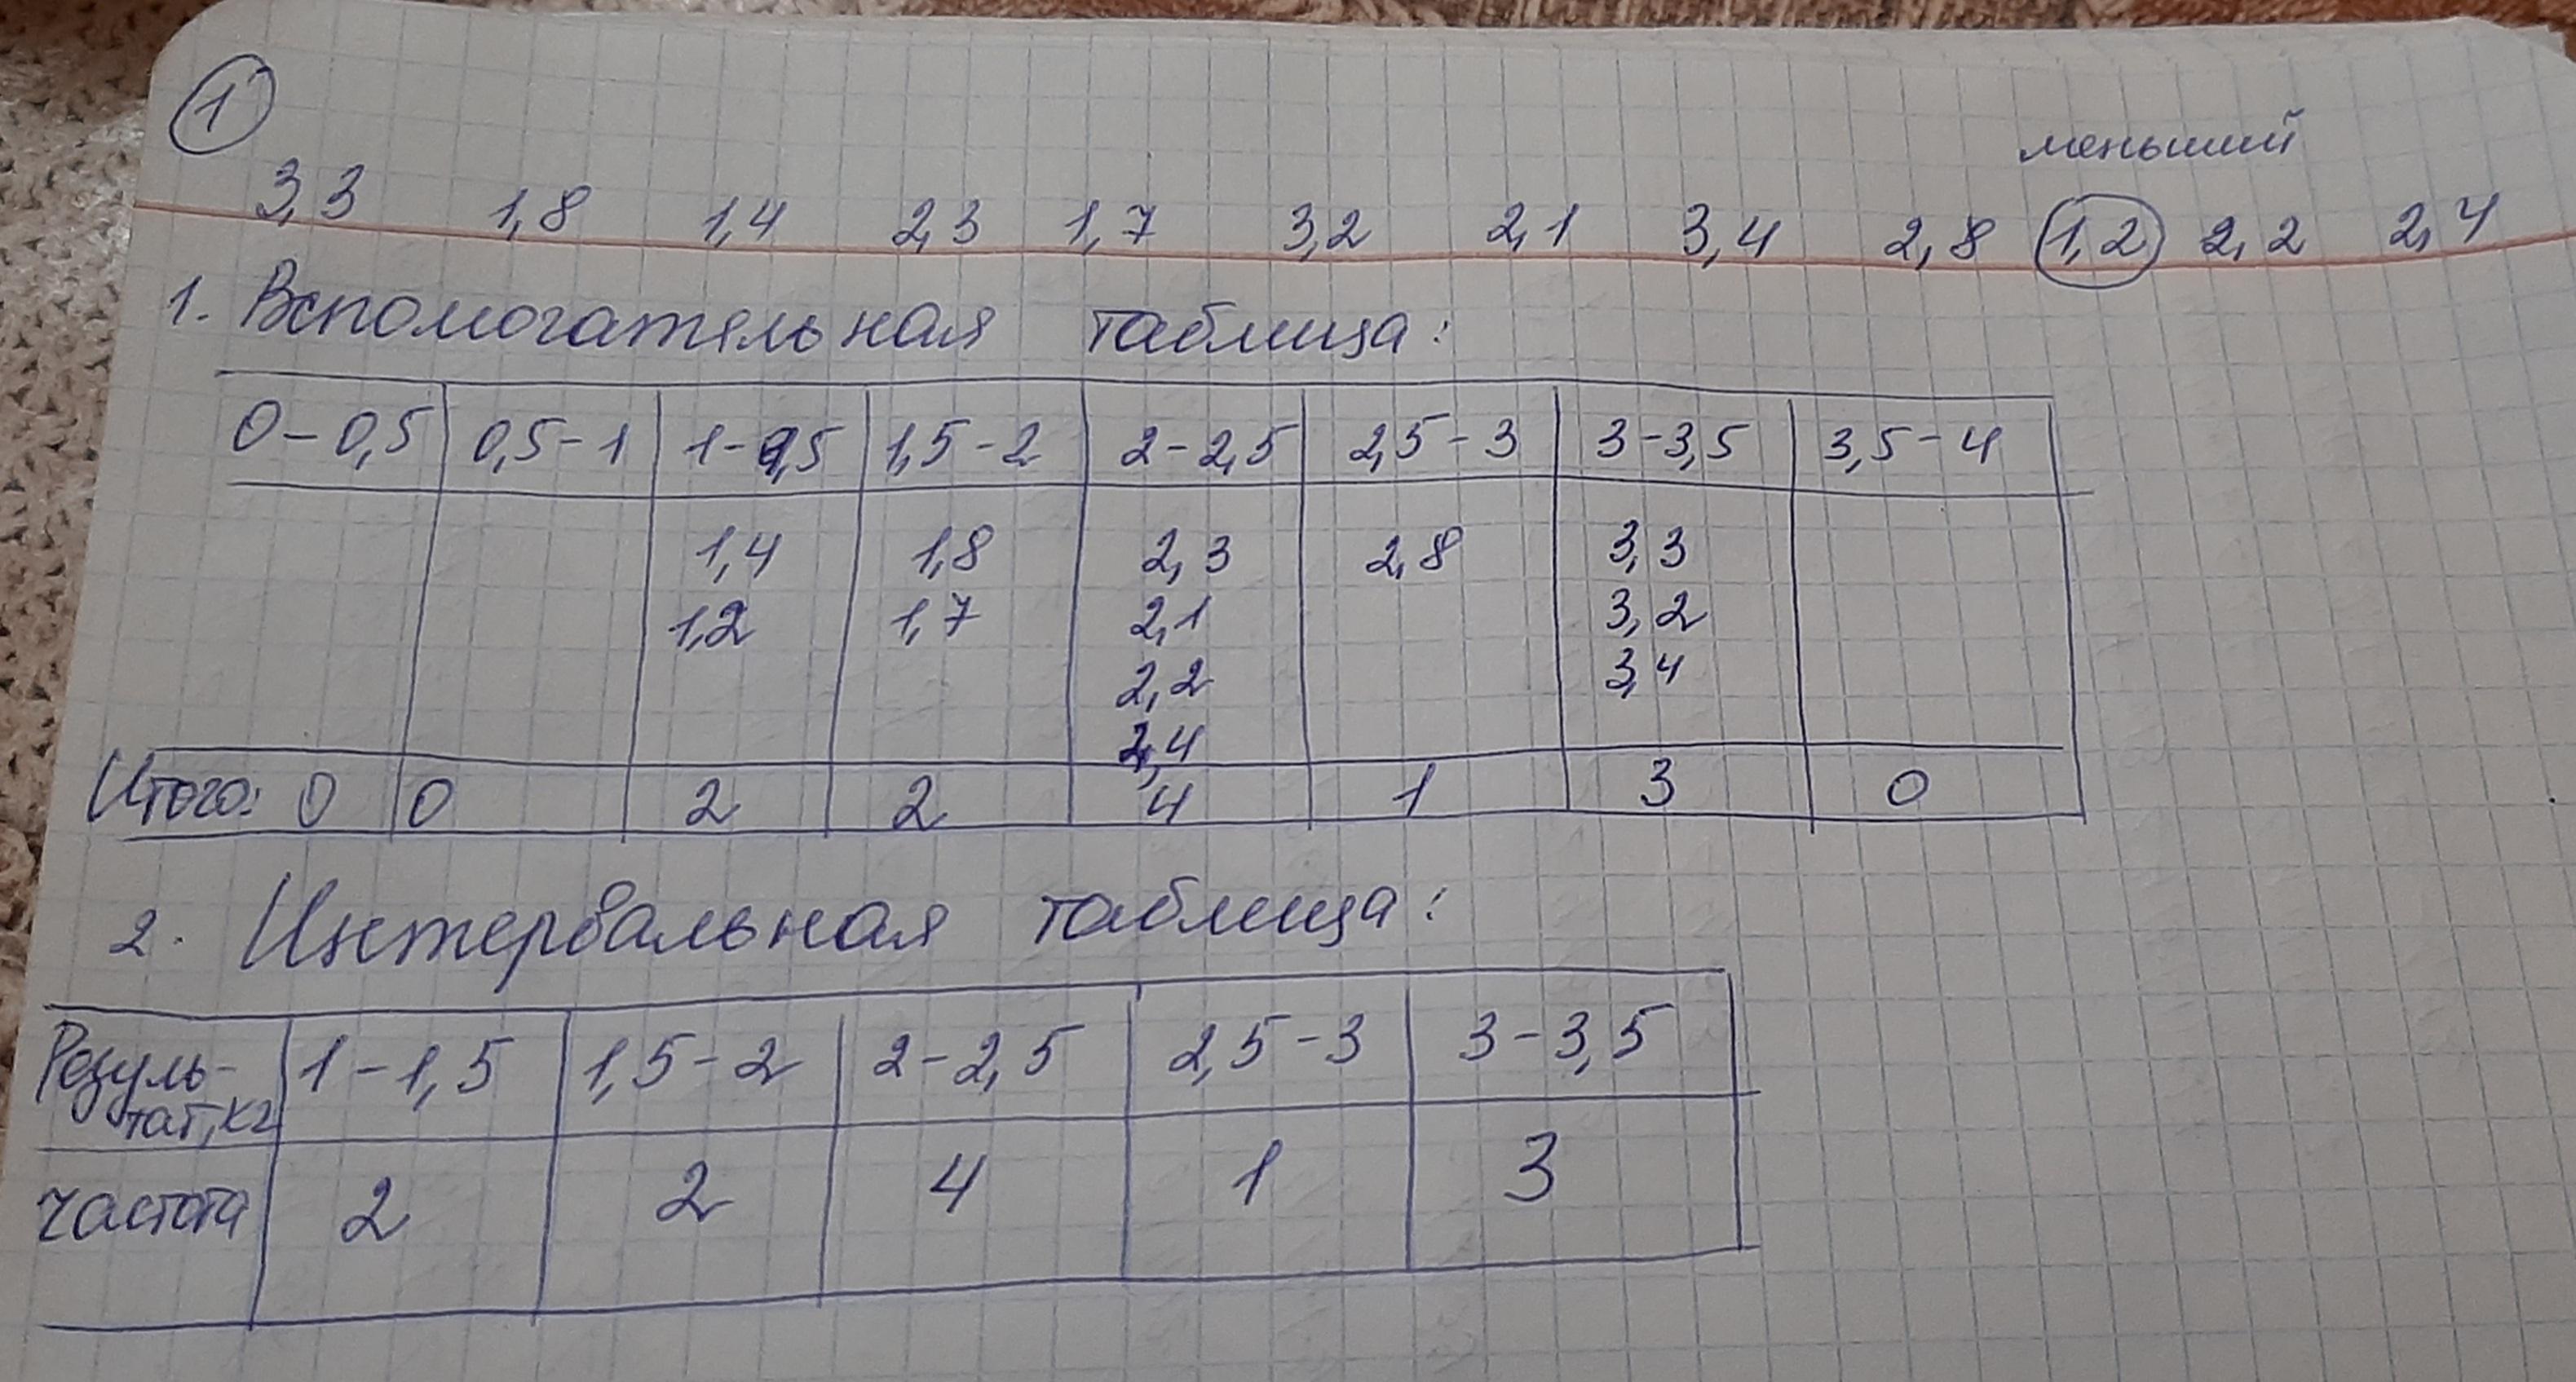 1
меньший
3,3 1,8 1,4 2,3 1,7 3,2 2,1 3,4 2,8 1,2 2,2 2,4
1. Вспомогательная таблица:
0-0,5 0,5-1 1-1,5 1,5-2 2-2,5 2,5-3 3-3,5 3,5-4
1,4 1,8 2,3 2,8 3,3
1,2 1,7 2,1 3,2
2,2 3,4
2,4
Итого: 0 0 2 2 4 1 3 0
2. Интервальная таблица:
Резуль- 1-1,5 1,5-2 2-2,5 2,5-3 3-3,5
тат,кг
частота 2 2 4 1 3